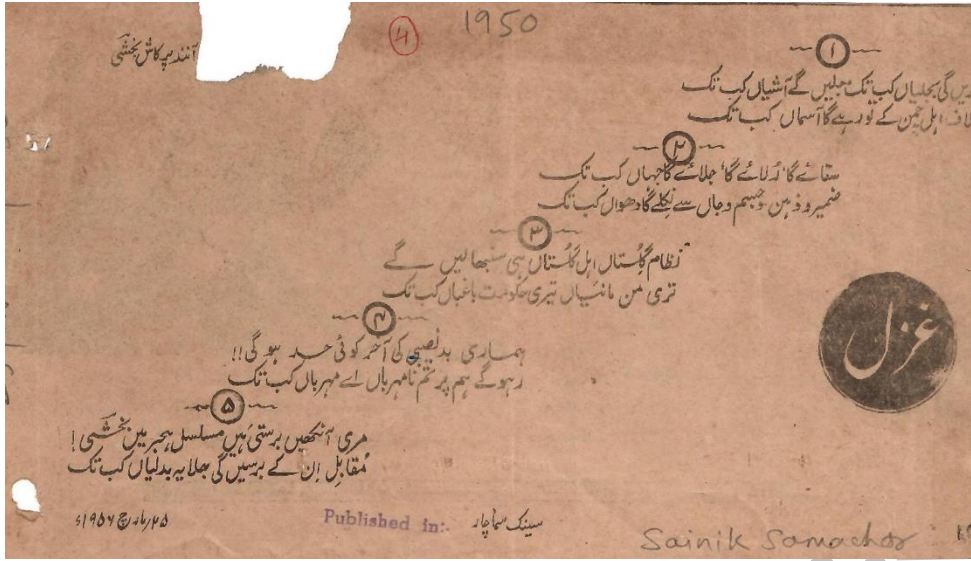 1950
4
آنند پرکاش بخشیؔ
غزل
۱
گی بجلیاں کب تک جلیں گے آشیاں کب تک
اہل چمن کے تو رہے گا آسماں کب تک
۲
ستائے گا، رُلائے گا، جلائے گا جہاں کب تک
ضمیر و ذہن و جسم و جاں سے نکلے گا دھواں کب تک
۳
نظام گلُستاں اہل گلُستاں ہی سنبھالیں گے
تری من مانیاں تیری حکومت باغباں کب تک
۴
ہماری بدنصیبی کی آخر کوئی حد ہوگی!!
رہوگے ہم پر تم نامہرباں اے مہرباں کب تک
۵
مری آنکھیں برستی ہیں مسلسل ہجر میں بخشیؔ!
مُقابل اِن کے برسیں گی بھلا یہ بدلیاں کب تک
۲۵؍مارچ ۱۹۵۶ء
Published in:- سینک سماچار
Sainik Samachar